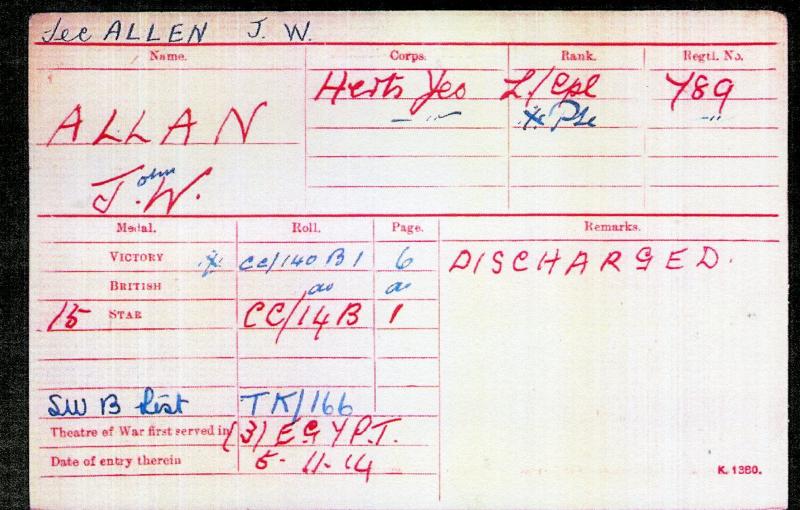 See ALLEN J. W.
Name. Corps. Rank. Regtl. No.
Herts Yeo L/Cpl 789
ALLAN — " — * Pte — " —
John W.
Medal. Roll. Page. Remarks.
VICTORY * CC/140 B1 6 DISCHARGED.
BRITISH do do
15 STAR CC/14 B 1
SWB List TK/166
Theatre of War first served in (3) EGYPT.
Date of entry therein 5-11-14
K. 1380.